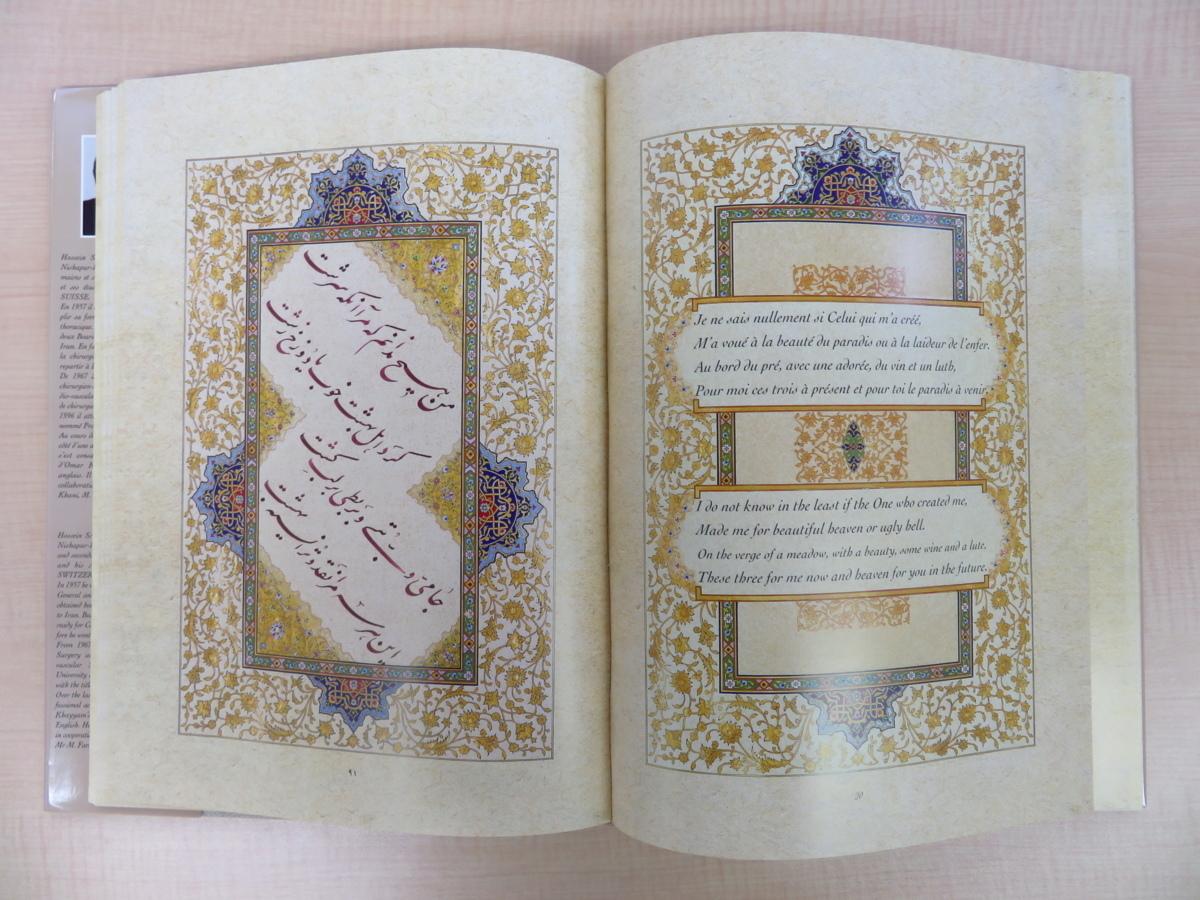 Hossein
SUISSE.
En 1957 il
plir sa
deux
Iran. En
la
repartir à
De 1967
de
1996 il
nommé
Au cours
côté d'une
s'est
d'Omar
anglais. Il
Khani, M.
Hossein
and
and his
In 1957 he
General
obtained
to Iran.
ready for
fore he
From 1967
Surgery
vascular
University
with the
Over the
English.
in
Mr M.
من هیچ ندانم که مرا آنکه سرشت
کرد اهل بهشت خوب یا دوزخ زشت
جامی و بتی و بربطی بر لب کشت
این هر سه مرا نقد و ترا نسیه بهشت
۹۱
Je ne sais nullement si Celui qui m'a créé,
M'a voué à la beauté du paradis ou à la laideur de l'enfer.
Au bord du pré, avec une adorée, du vin et un luth,
Pour moi ces trois à présent et pour toi le paradis à venir.
I do not know in the least if the One who created me,
Made me for beautiful heaven or ugly hell.
On the verge of a meadow, with a beauty, some wine and a lute,
These three for me now and heaven for you in the future.
20